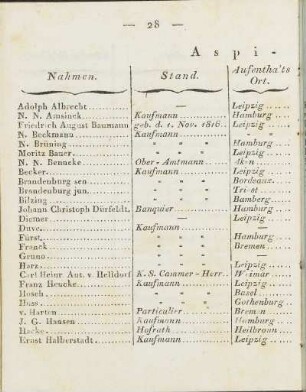 — 28 —
A s p i -
Nahmen. Stand. Aufentha'ts Ort.
Adolph Albrecht — Leipzig
N. N. Amsinck Kaufmann Hamburg
Friedrich August Baumann geb. d. 1. Nov. 1816. Leipzig
N. Beckmann Kaufmann "
N. Brüning " " Hamburg
Moritz Bauer " " Leipzig
N. N. Benneke Ober-Amtmann
Becker Kaufmann Leipzig
Brandenburg sen. " " Bordeaux
Brandenburg jun. " " Triest
Bilzing " " Bamberg
Johann Christoph Dürfeldt. Banquier Hamburg
Diemer — Leipzig
Duve Kaufmann —
Fürst " " Hamburg
Franck " " Bremen
Gruno " " —
Harz " " Leipzig
Carl Heinr. Ant. v. Helldorf K. S. Cammer-Herr Weimar
Franz Heucke Kaufmann Leipzig
Hosch " " Basel
Huss " " Gothenburg
v. Harten Particulier Bremen
J. G. Hansen Kaufmann Hamburg
Hofrath Heilbronn
Ernst Halberstadt Kaufmann Leipzig